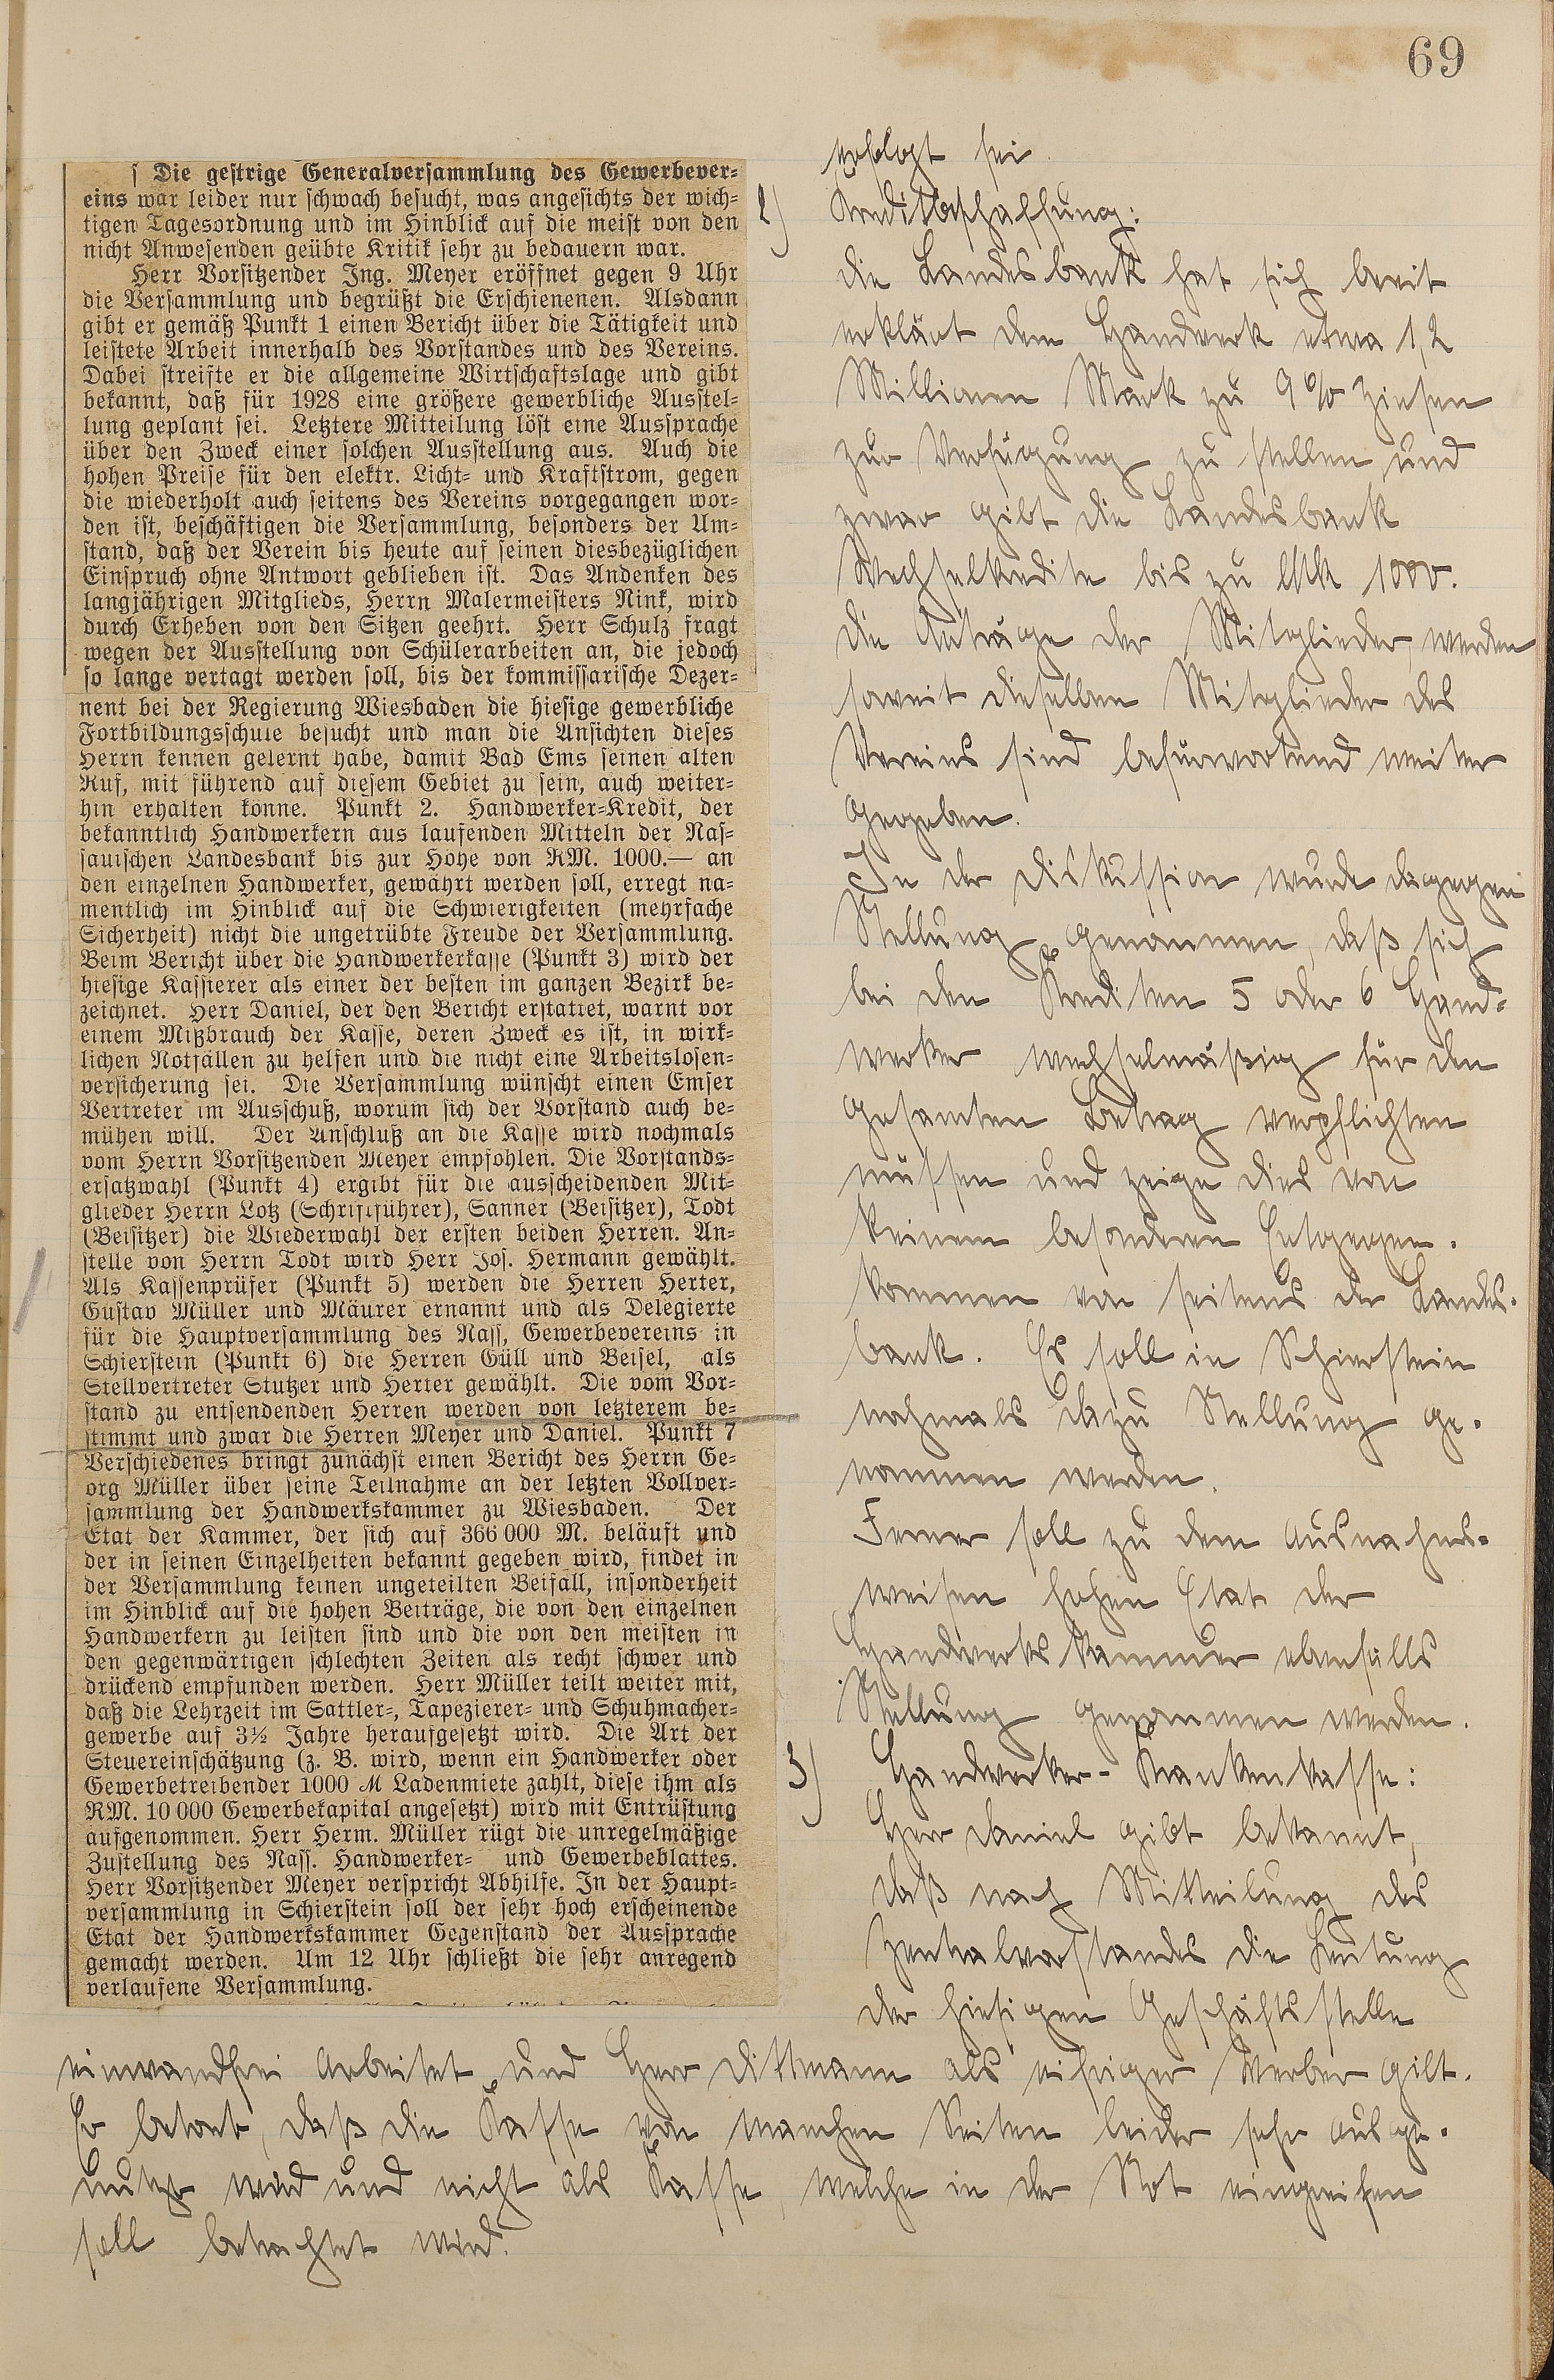 69
ſ Die geſtrige Generalverſammlung des Gewerbever-
eins war leider nur ſchwach beſucht, was angeſichts der wich-
tigen Tagesordnung und im Hinblick auf die meiſt von den
nicht Anweſenden geübte Kritik ſehr zu bedauern war.
Herr Vorſitzender Ing. Meyer eröffnet gegen 9 Uhr
die Verſammlung und begrüßt die Erſchienenen. Alsdann
gibt er gemäß Punkt 1 einen Bericht über die Tätigkeit und
leiſtete Arbeit innerhalb des Vorſtandes und des Vereins.
Dabei ſtreifte er die allgemeine Wirtſchaftslage und gibt
bekannt, daß für 1928 eine größere gewerbliche Ausſtel-
lung geplant ſei. Letztere Mitteilung löſt eine Ausſprache
über den Zweck einer ſolchen Ausſtellung aus. Auch die
hohen Preiſe für den elektr. Licht- und Kraftſtrom, gegen
die wiederholt auch ſeitens des Vereins vorgegangen wor-
den iſt, beſchäftigen die Verſammlung, beſonders der Um-
ſtand, daß der Verein bis heute auf ſeinen diesbezüglichen
Einſpruch ohne Antwort geblieben iſt. Das Andenken des
langjährigen Mitglieds, Herrn Malermeiſters Nink, wird
durch Erheben von den Sitzen geehrt. Herr Schulz fragt
wegen der Ausſtellung von Schülerarbeiten an, die jedoch
ſo lange vertagt werden ſoll, bis der kommiſſariſche Dezer-
nent bei der Regierung Wiesbaden die hieſige gewerbliche
Fortbildungsſchule beſucht und man die Anſichten dieſes
Herrn kennen gelernt habe, damit Bad Ems ſeinen alten
Ruf, mit führend auf dieſem Gebiet zu ſein, auch weiter-
hin erhalten könne. Punkt 2. Handwerker-Kredit, der
bekanntlich Handwerkern aus laufenden Mitteln der Naſ-
ſauiſchen Landesbank bis zur Höhe von RM. 1000.— an
den einzelnen Handwerker, gewährt werden ſoll, erregt na-
mentlich im Hinblick auf die Schwierigkeiten (mehrfache
Sicherheit) nicht die ungetrübte Freude der Verſammlung.
Beim Bericht über die Handwerkerkaſſe (Punkt 3) wird der
hieſige Kaſſierer als einer der beſten im ganzen Bezirk be-
zeichnet. Herr Daniel, der den Bericht erſtattet, warnt vor
einem Mißbrauch der Kaſſe, deren Zweck es iſt, in wirk-
lichen Notfällen zu helfen und die nicht eine Arbeitsloſen-
verſicherung ſei. Die Verſammlung wünſcht einen Emſer
Vertreter im Ausſchuß, worum ſich der Vorſtand auch be-
mühen will. Der Anſchluß an die Kaſſe wird nochmals
vom Herrn Vorſitzenden Meyer empfohlen. Die Vorſtands-
erſatzwahl (Punkt 4) ergibt für die ausſcheidenden Mit-
glieder Herrn Lotz (Schriftführer), Sanner (Beiſitzer), Todt
(Beiſitzer) die Wiederwahl der erſten beiden Herren. An-
ſtelle von Herrn Todt wird Herr Joſ. Hermann gewählt.
Als Kaſſenprüfer (Punkt 5) werden die Herren Herter,
Guſtav Müller und Mäurer ernannt und als Delegierte
für die Hauptverſammlung des Naſſ, Gewerbevereins in
Schierſtein (Punkt 6) die Herren Güll und Beiſel, als
Stellvertreter Stutzer und Herter gewählt. Die vom Vor-
ſtand zu entſendenden Herren werden von letzterem be-
ſtimmt und zwar die Herren Meyer und Daniel. Punkt 7
Verſchiedenes bringt zunächſt einen Bericht des Herrn Ge-
org Müller über ſeine Teilnahme an der letzten Vollver-
ſammlung der Handwerkskammer zu Wiesbaden. Der
Etat der Kammer, der ſich auf 366 000 M. beläuft und
der in ſeinen Einzelheiten bekannt gegeben wird, findet in
der Verſammlung keinen ungeteilten Beifall, inſonderheit
im Hinblick auf die hohen Beiträge, die von den einzelnen
Handwerkern zu leiſten ſind und die von den meiſten in
den gegenwärtigen ſchlechten Zeiten als recht ſchwer und
drückend empfunden werden. Herr Müller teilt weiter mit,
daß die Lehrzeit im Sattler-, Tapezierer- und Schuhmacher-
gewerbe auf 3½ Jahre heraufgeſetzt wird. Die Art der
Steuereinſchätzung (z. B. wird, wenn ein Handwerker oder
Gewerbetreibender 1000 M Ladenmiete zahlt, dieſe ihm als
RM. 10 000 Gewerbekapital angeſetzt) wird mit Entrüſtung
aufgenommen. Herr Herm. Müller rügt die unregelmäßige
Zuſtellung des Naſſ. Handwerker- und Gewerbeblattes.
Herr Vorſitzender Meyer verſpricht Abhilfe. In der Haupt-
verſammlung in Schierſtein ſoll der ſehr hoch erſcheinende
Etat der Handwerkskammer Gegenſtand der Ausſprache
gemacht werden. Um 12 Uhr ſchließt die ſehr anregend
verlaufene Verſammlung.
erfolgt sei.
2) Kreditbeschaffung:
die Landesbank hat sich bereit
erklärt dem Handwerk etwa 1,2
Millionen Mark zu 9% Zinsen
zur Verfügung zu stellen und
zwar gibt die Landesbank
Wechselkredite bis zu Mk 1000.
die Anträge der Mitglieder, werden
soweit dieselben Mitglieder des
Vereins sind befürwortend weiter
gegeben.
In der Diskussion wurde dagegen
Stellung genommen, daß sich
bei den Krediten 5 oder 6 Hand-
werker wechselmäßig für den
gesamten Betrag verpflichten
müssen und zeige dies von
keinem besonderen Entgegen-
kommen von seitens der Landes-
bank. Es soll in Schierstein
nochmals dazu Stellung ge-
nommen werden.
Ferner soll zu dem ausnahms-
weisen hohen Etat der
Handwerkskammer ebenfalls
Stellung genommen werden.
3) Handwerker-Krankenkasse:
Herr Daniel gibt bekannt,
daß nach Mitteilung des
Zentralvorstandes die Leitung
der hiesigen Geschäftsstelle
einwandfrei arbeitet und Herr Dittmann als eifriger Werber gilt.
Er betont, daß die Kasse von manchen Seiten leider sehr ausge-
nutzt wird und nicht als Kasse, welche in der Not eingreifen
soll betrachtet wird.